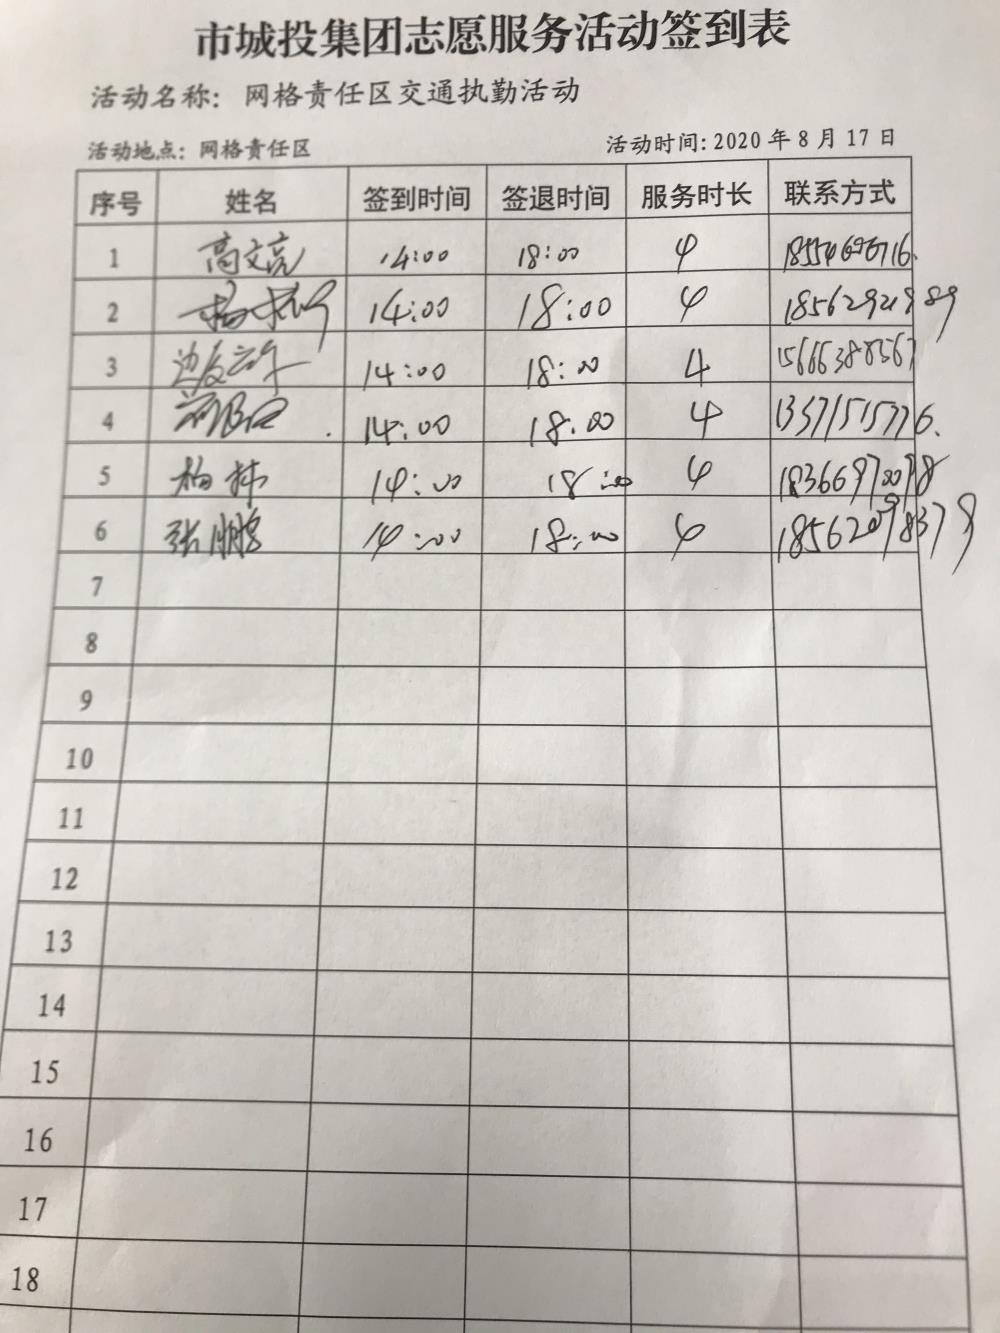 市城投集团志愿服务活动签到表
活动名称：网格责任区交通执勤活动
活动地点：网格责任区 活动时间：2020 年 8 月 17 日
序号 姓名 签到时间 签退时间 服务时长 联系方式
1 高文亮 14:00 18:00 4
2 14:00 18:00 4 18562921989
3 14:00 18:00 4 15666388567
4 14:00 18:00 4 13371515776.
5 14:00 18:00 4
6 张鹏 14:00 18:00 4
7
8
9
10
11
12
13
14
15
16
17
18